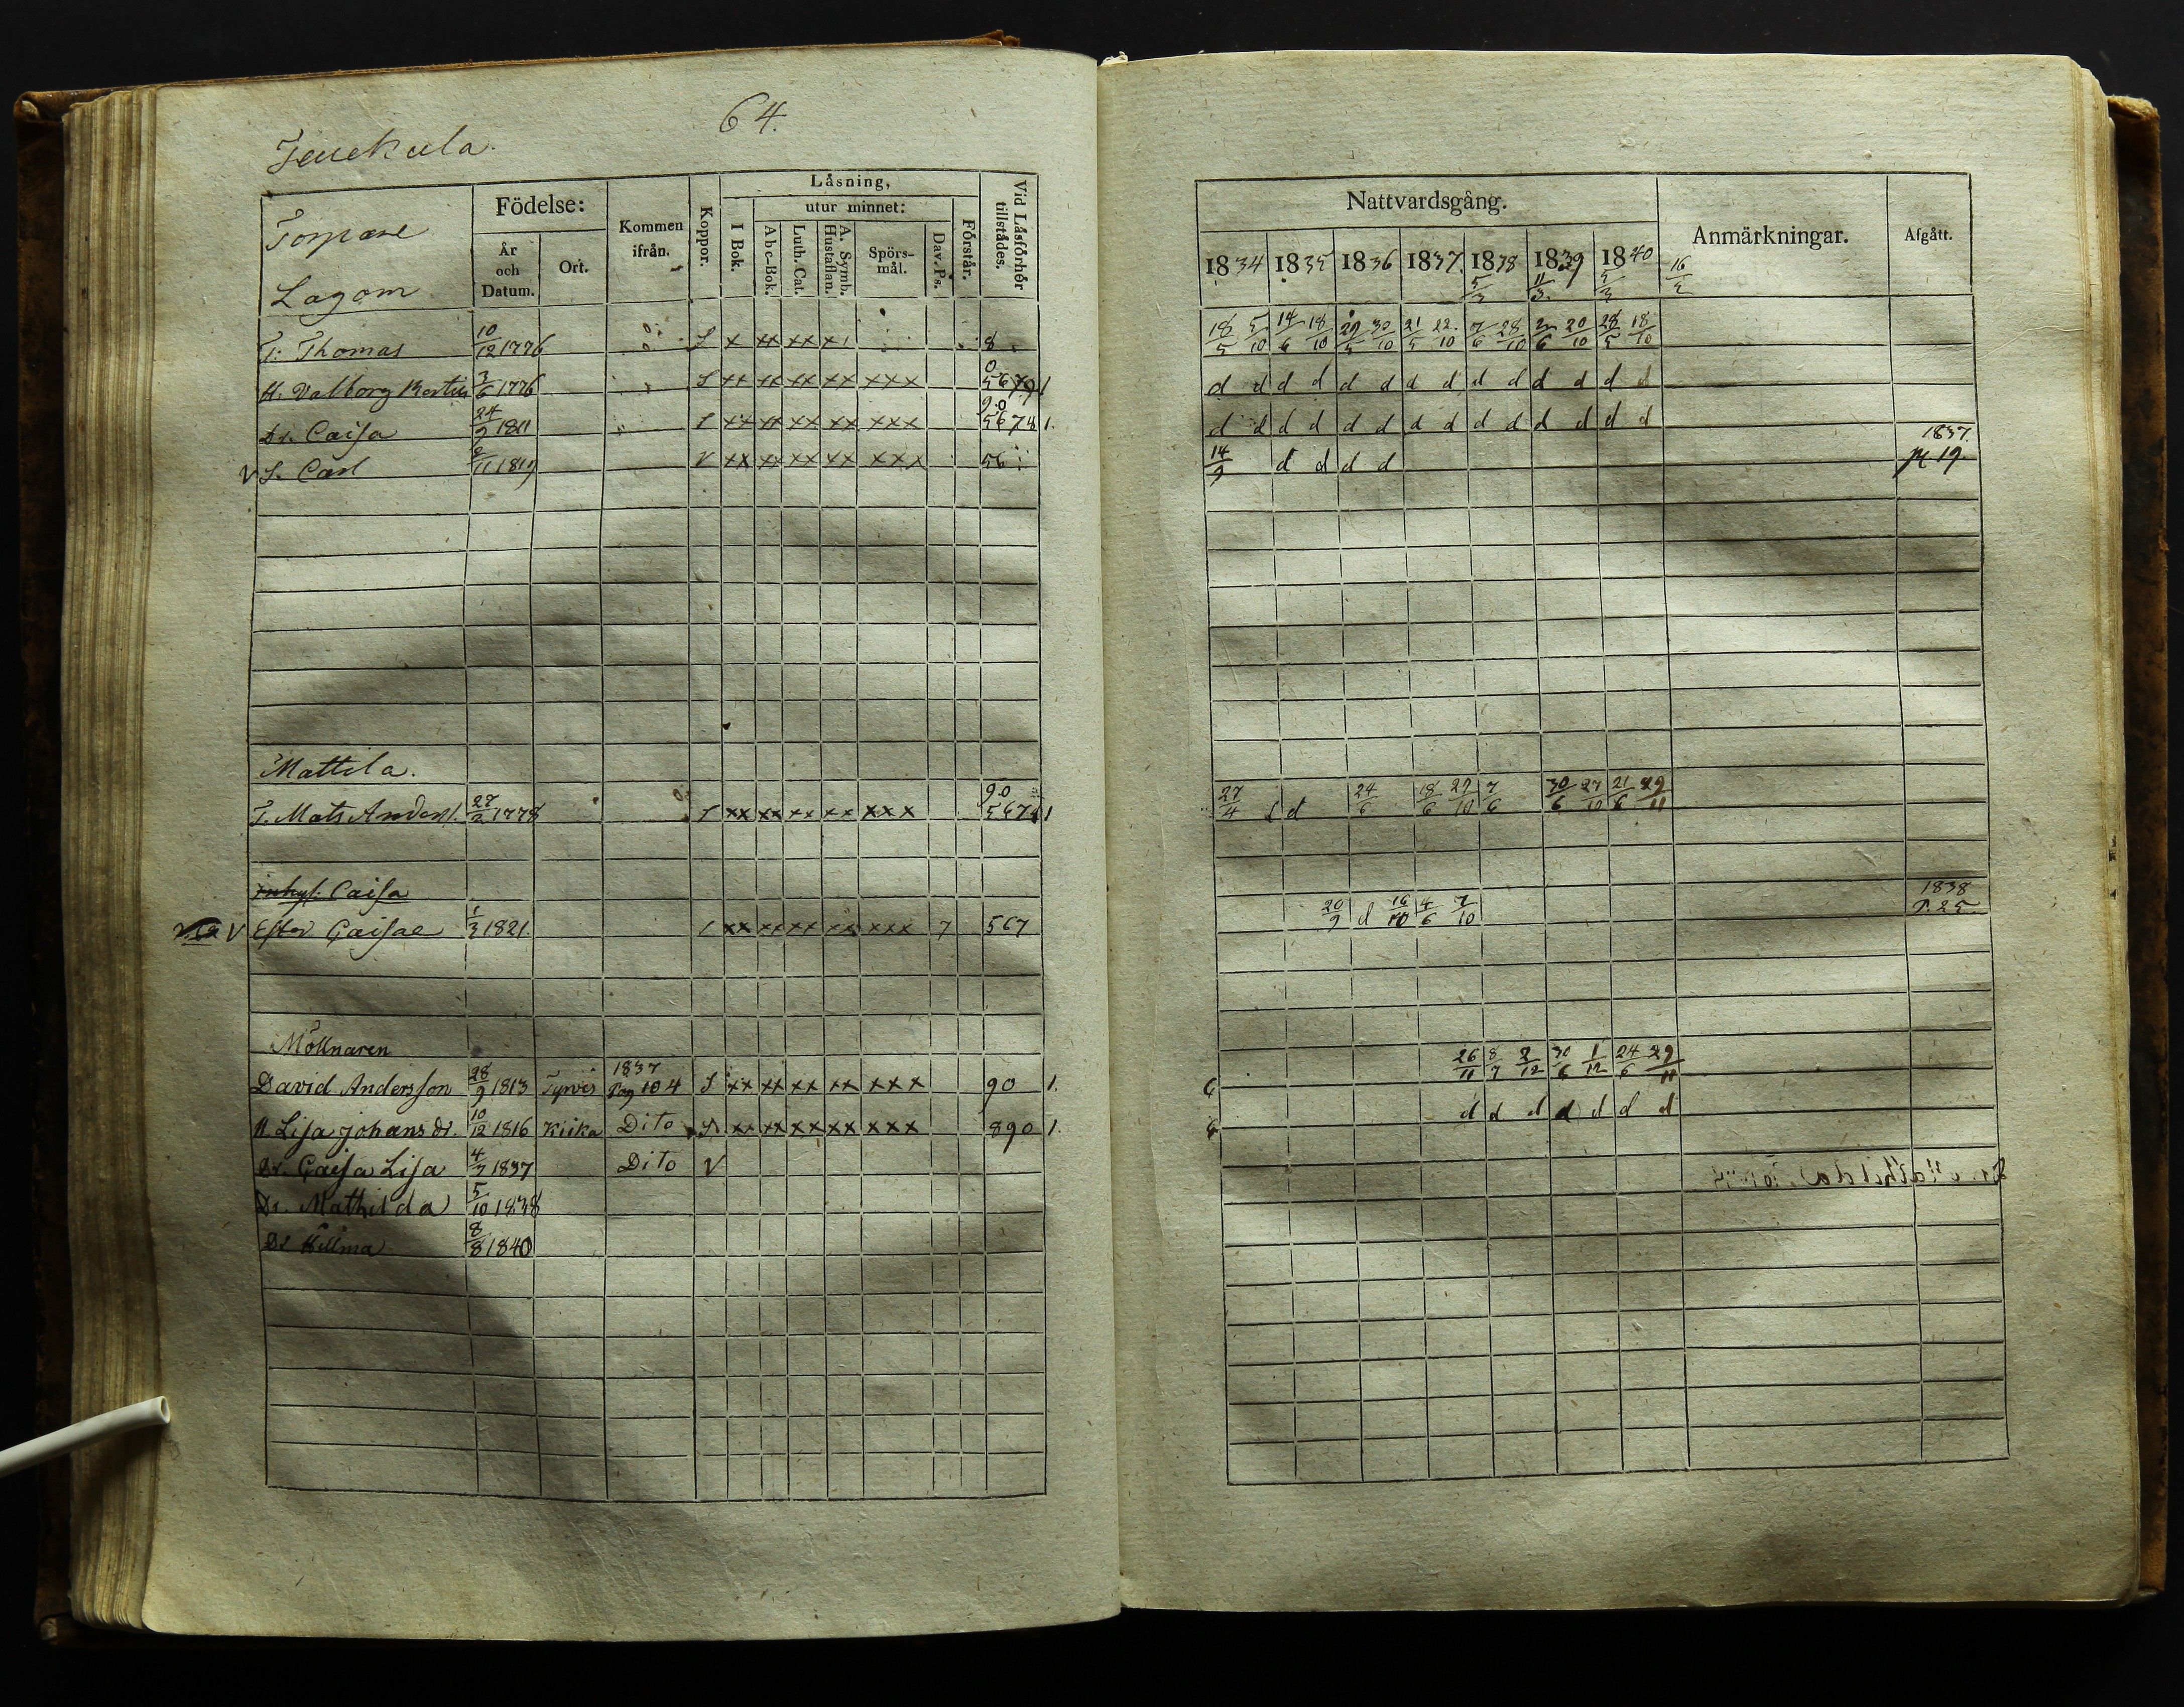 64.
Jeuekula.
Torpare
Lagom
Födelse:
År och Datum.
Ort.
Kommen ifrån.
Koppor.
Låsning,
utur minnet:
I Bok.
Abc-Bok.
Luth. Cat.
A. Symb. Hustaflan.
Spörsmål.
Dav. Ps.
Förstår.
Vid Låsförhör tillstådes.
T. Thomas 10/12 1776 S x xx xx x 8
H. Valborg 3/6 1776 S xx xx xx xx xxx 0 5679 1
Dr. Caisa 24/9 1811 S xx xx xx xx xxx 9.0 5678 1.
V S. Carl 2/11 1819 V xx xx xx xx xxx 56
Mattila.
T. Mats Anders. 27/2 1778 S xx xx xx xx xxx 9.0 5678 1
Inhys. Caisa
V Ester Caisae 1/3 1821 xx xx xx xx xxx 7 567
Möllnaren
David Andersson 28/9 1813 Tyrvis 1837 Pag 104 S xx xx xx xx xxx 90 1.
H. Lisa Johans dr. 10/12 1816 Kiika Dito S xx xx xx xx xxx 890 1.
Dr. Caisa Lisa 4/7 1837 Dito V
Dr. Mathilda 5/10 1838
Dr Hilma 8/8 1840
Nattvardsgång.
Anmärkningar.
Afgått.
1834 1835 1836 1837. 1838 1839 1840
5/3 11/3 5/3 16/2
18/5 5/10 14/6 18/10 29/5 30/10 21/5 22/10 7/6 28/10 2/6 20/10 28/5 18/10
d d d d d d d d d d d d d d
d d d d d d d d d d d d d d
14/9 d d d d 1837. 19.
27/4 d d 24/6 18/6 29/10 7/6 30/6 27/10 21/6 29/11
20/9 d 16/10 4/6 7/10 1838 P. 25
26/11 8/7 2/12 30/6 1/12 24/6 29/11
d d d d d d d